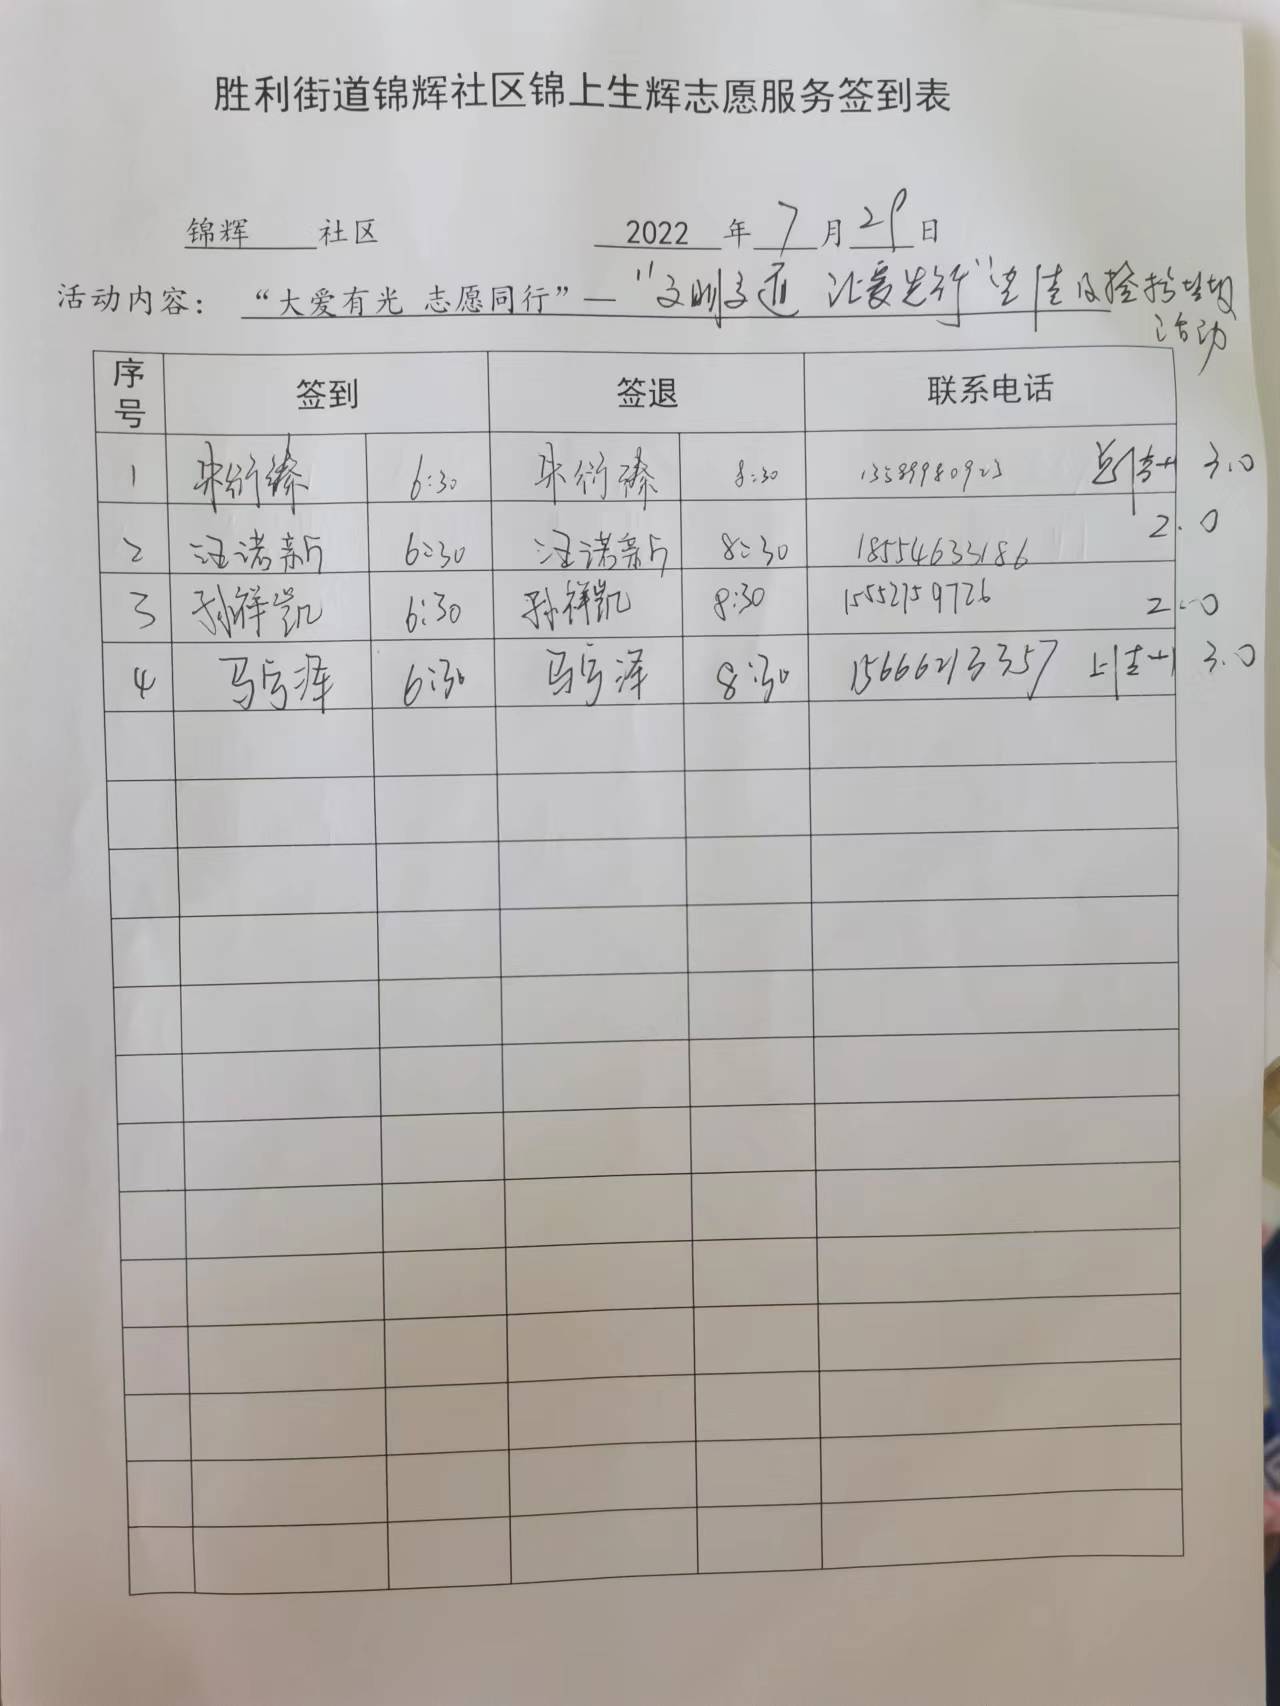 胜利街道锦辉社区锦上生辉志愿服务签到表
锦辉 社区 2022 年 7 月 29 日
活动内容：“大爱有光 志愿同行”—“文明交通 让爱先行”宣传及捡拾垃圾
活动
序号 签到 签退 联系电话
1 宋衍臻 6:30 宋衍臻 8:30 13589980923 3.0
2 汪诺新 6:30 汪诺新 8:30 18554633186 2.0
3 孙祥凯 6:30 孙祥凯 8:30 15552759726 2.0
4 马宇泽 6:30 马宇泽 8:30 15666213357 上传+1 3.0